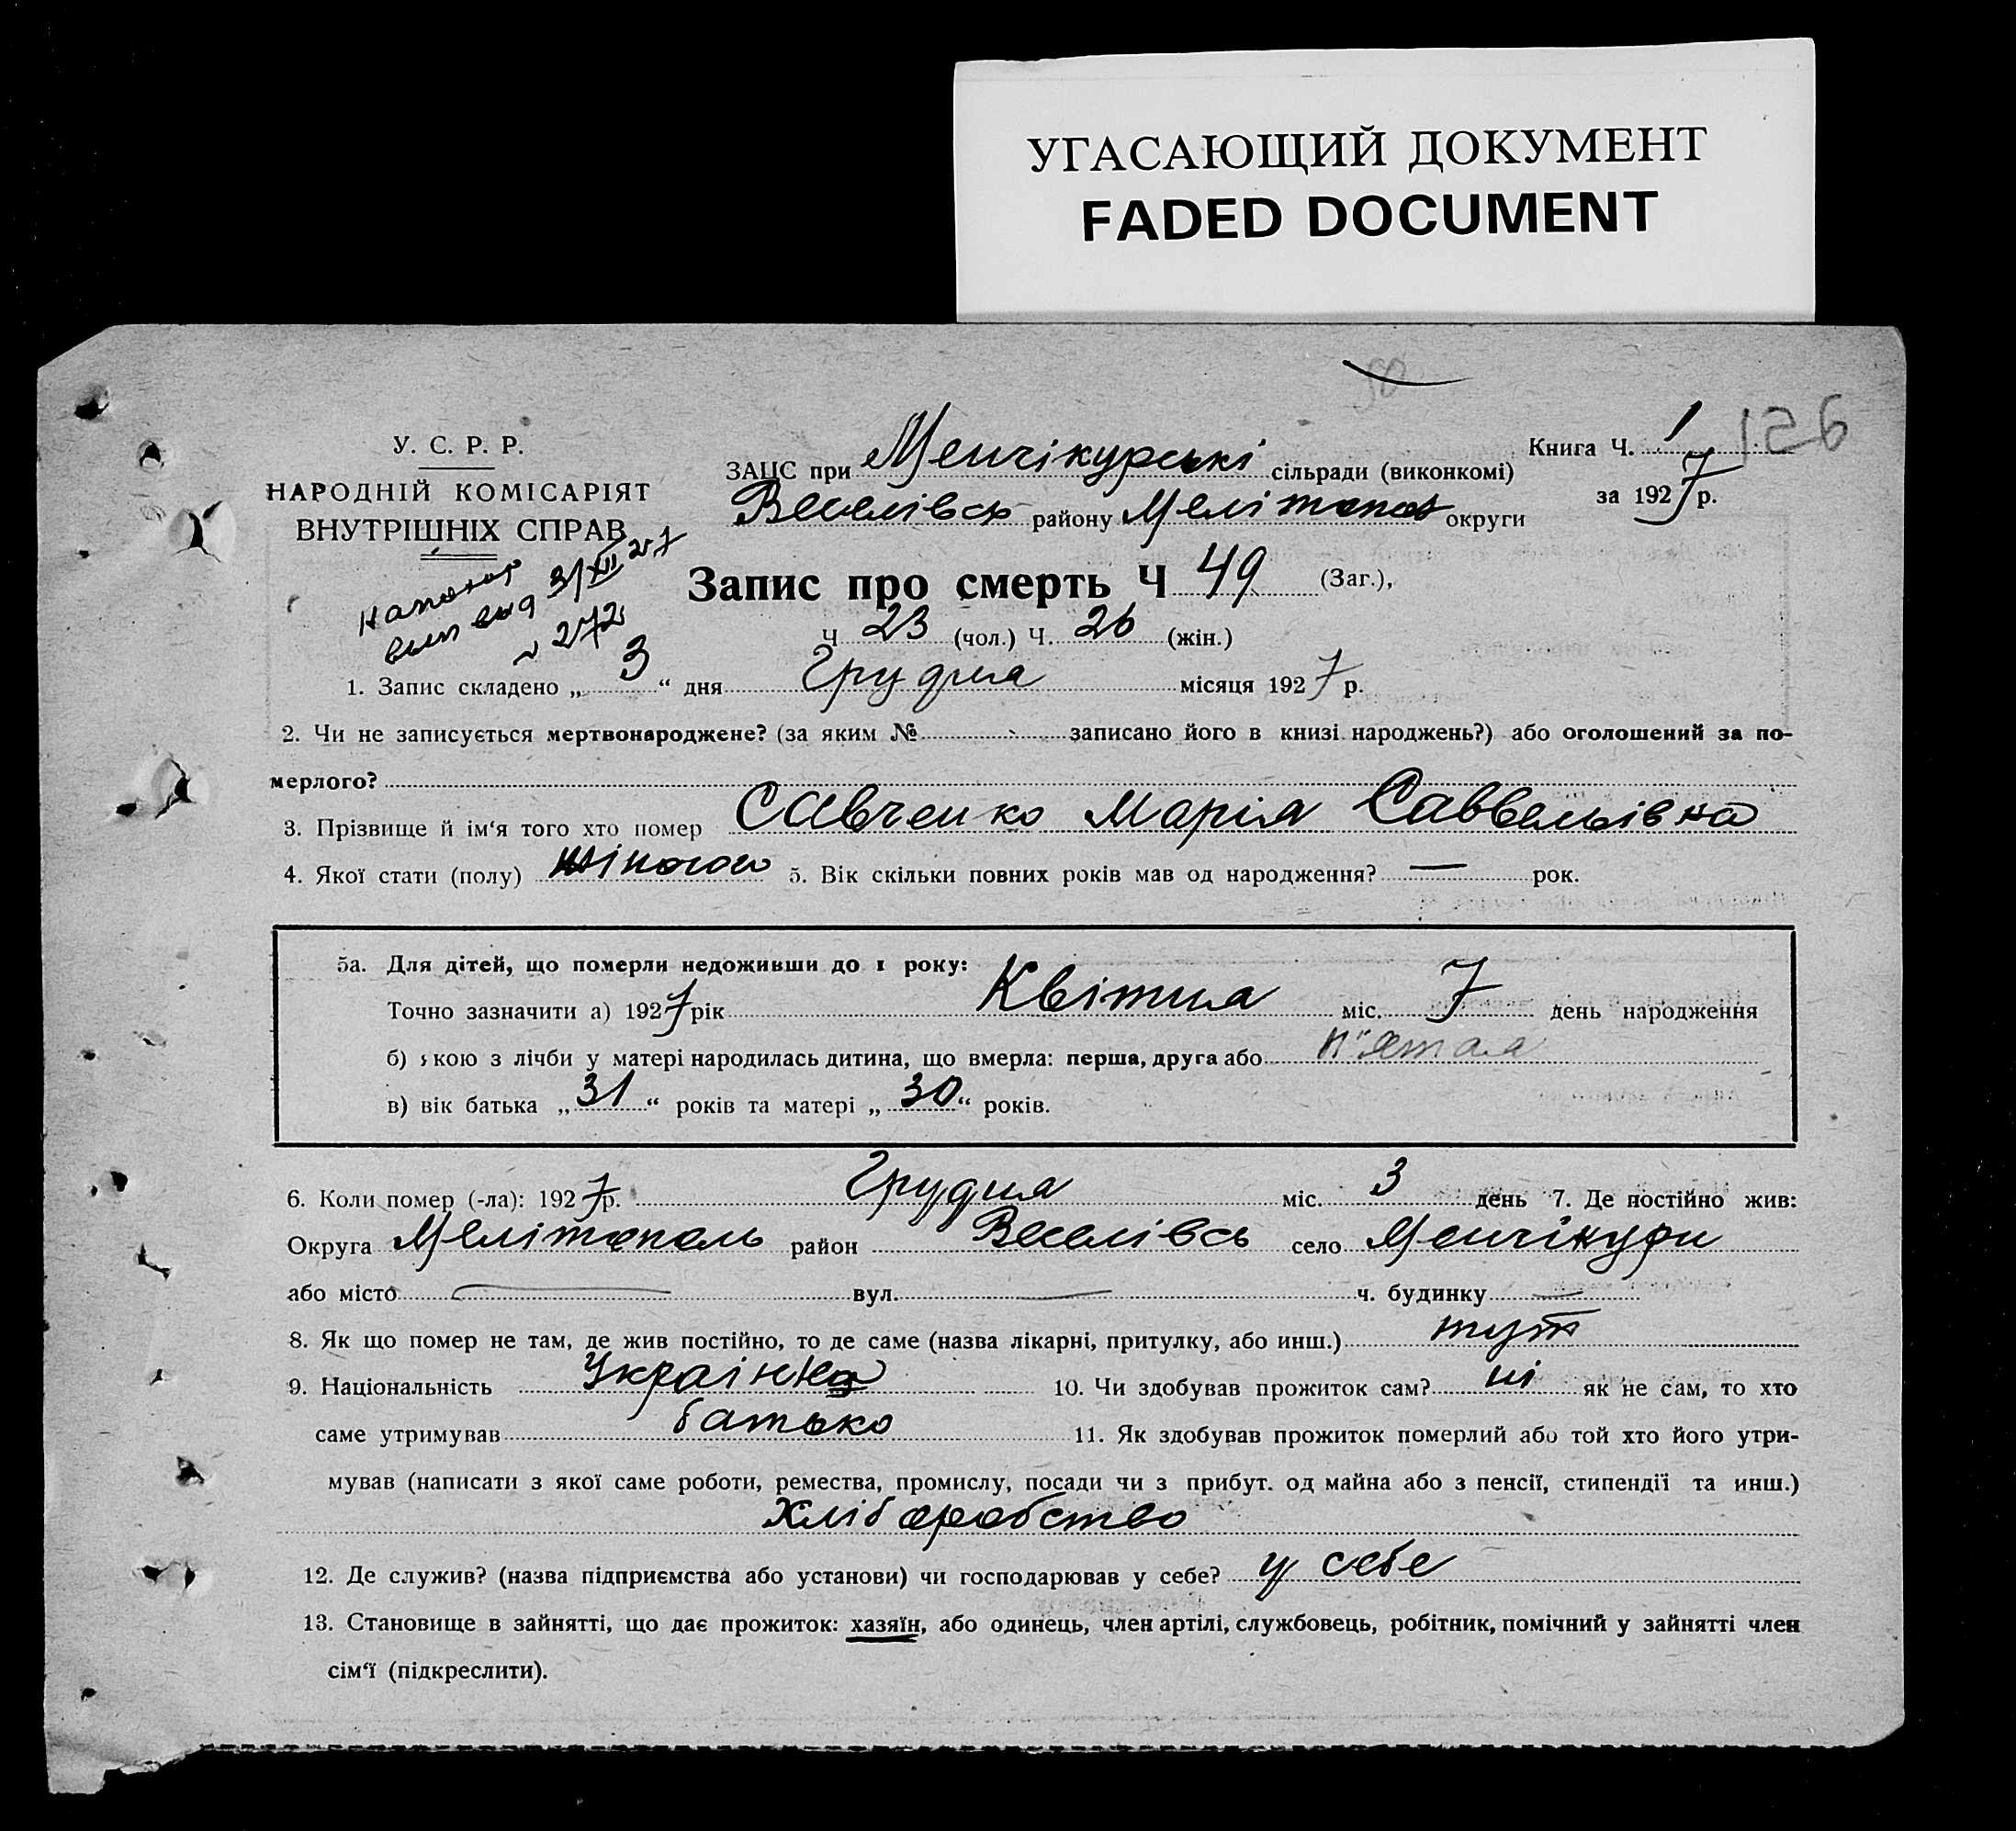 УГАСАЮЩИЙ ДОКУМЕНТ
FADED DOCUMENT
У. С. Р. Р.
НАРОДНІЙ КОМІСАРІЯТ
ВНУТРІШНІХ СПРАВ
3/XII 27
272
Книга Ч. 1
126
за 1927 р.
ЗАЦС при Менчікурські сільради (виконкомі)
Веселівск району Мелітопол округи
Запис про смерть Ч 49 (Заг.),
Ч 23 (чол.) Ч. 26 (жін.)
1. Запис складено „ 3 “ дня Грудня місяця 1927 р.
2. Чи не записується мертвонароджене? (за яким № записано його в книзі народжень?) або оголошений за по-
мерлого?
3. Прізвище й ім‘я того хто помер Савченко Марія Саввельівна
4. Якої стати (полу) жіночої 5. Вік скільки повних років мав од народження? — рок.
5а. Для дітей, що померли недоживши до 1 року:
Точно зазначити а) 1927 рік Квітня міс. 7 день народження
б) якою з лічби у матері народилась дитина, що вмерла: перша, друга або п'ятая
в) вік батька „ 31 “ років та матері „ 30 “ років.
6. Коли помер (-ла): 1927 р. Грудня міс. 3 день 7. Де постійно жив:
Округа Мелітополь район Веселівсь село Менчікури
або місто — вул. — ч. будинку —
8. Як що помер не там, де жив постійно, то де саме (назва лікарні, притулку, або инш.) тут
9. Національність Українка 10. Чи здобував прожиток сам? ні як не сам, то хто
саме утримував батько 11. Як здобував прожиток померлий або той хто його утри-
мував (написати з якої саме роботи, ремества, промислу, посади чи з прибут. од майна або з пенсії, стипендії та инш.)
Хлібаробство
12. Де служив? (назва підприємства або установи) чи господарював у себе? у себе
13. Становище в зайнятті, що дає прожиток: хазяїн, або одинець, член артілі, службовець, робітник, помічний у зайнятті член
сім‘ї (підкреслити).